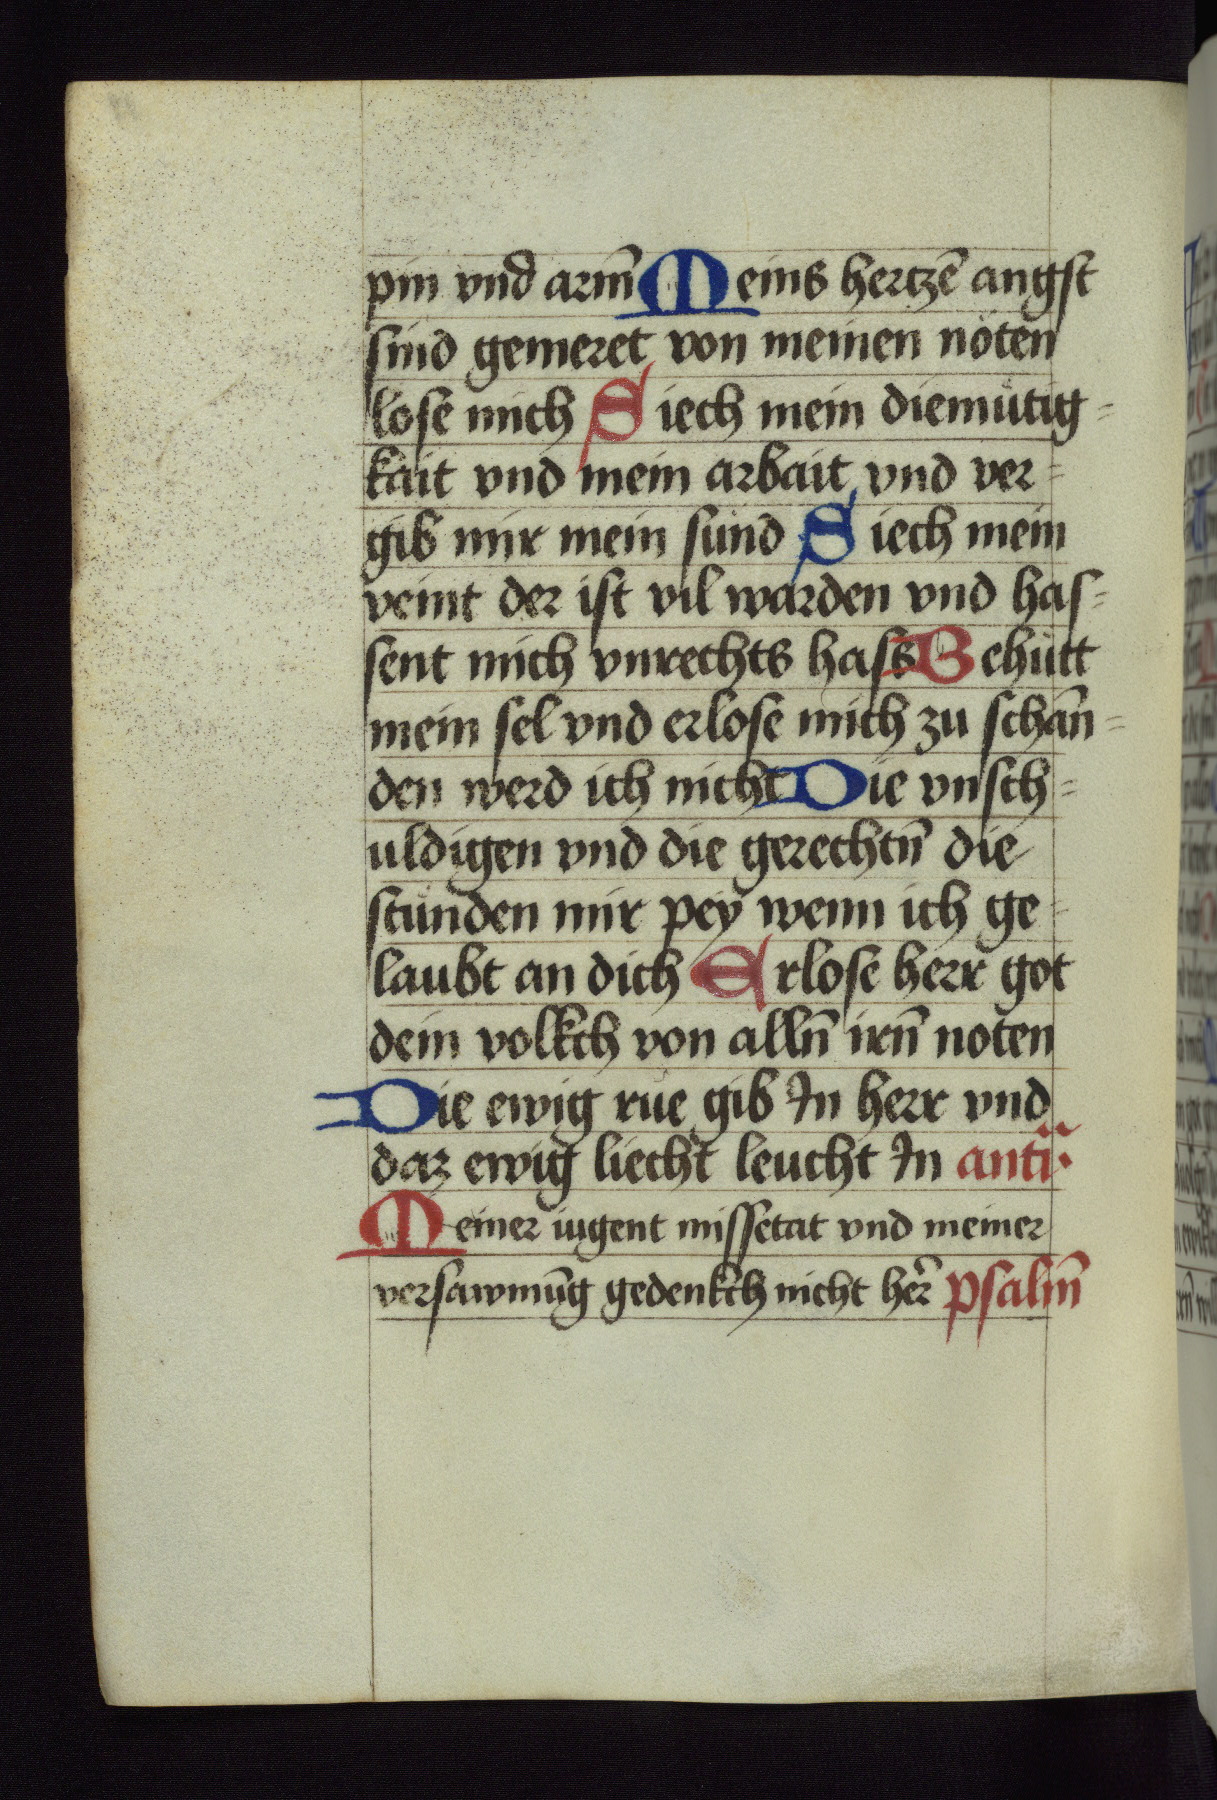 pin vnd arm̄ Meins hertzē angst
sind gemeret von meinen nöten
lose mich Siech mein diemütig=
kait vnd mein arbait vnd ver=
gib mir mein sünd Siech mein
veint der ist vil warden vnd has=
sent mich vnrechts hass Behütt
mein sel vnd erlose mich zu schan̄=
den werd ich nicht Die vnsch=
uldigen vnd die gerechtn̄ die
stünden mir pey wenn ich ge=
laubt an dich Erlose herr got
dein volkch von alln̄ irn̄ noten
Die ewig rüe gib In herr vnd
daz ewig liecht leucht In anti
Meiner iugent missetat vnd meiner
versawmūg gedenkch nicht her̄ psalm̄